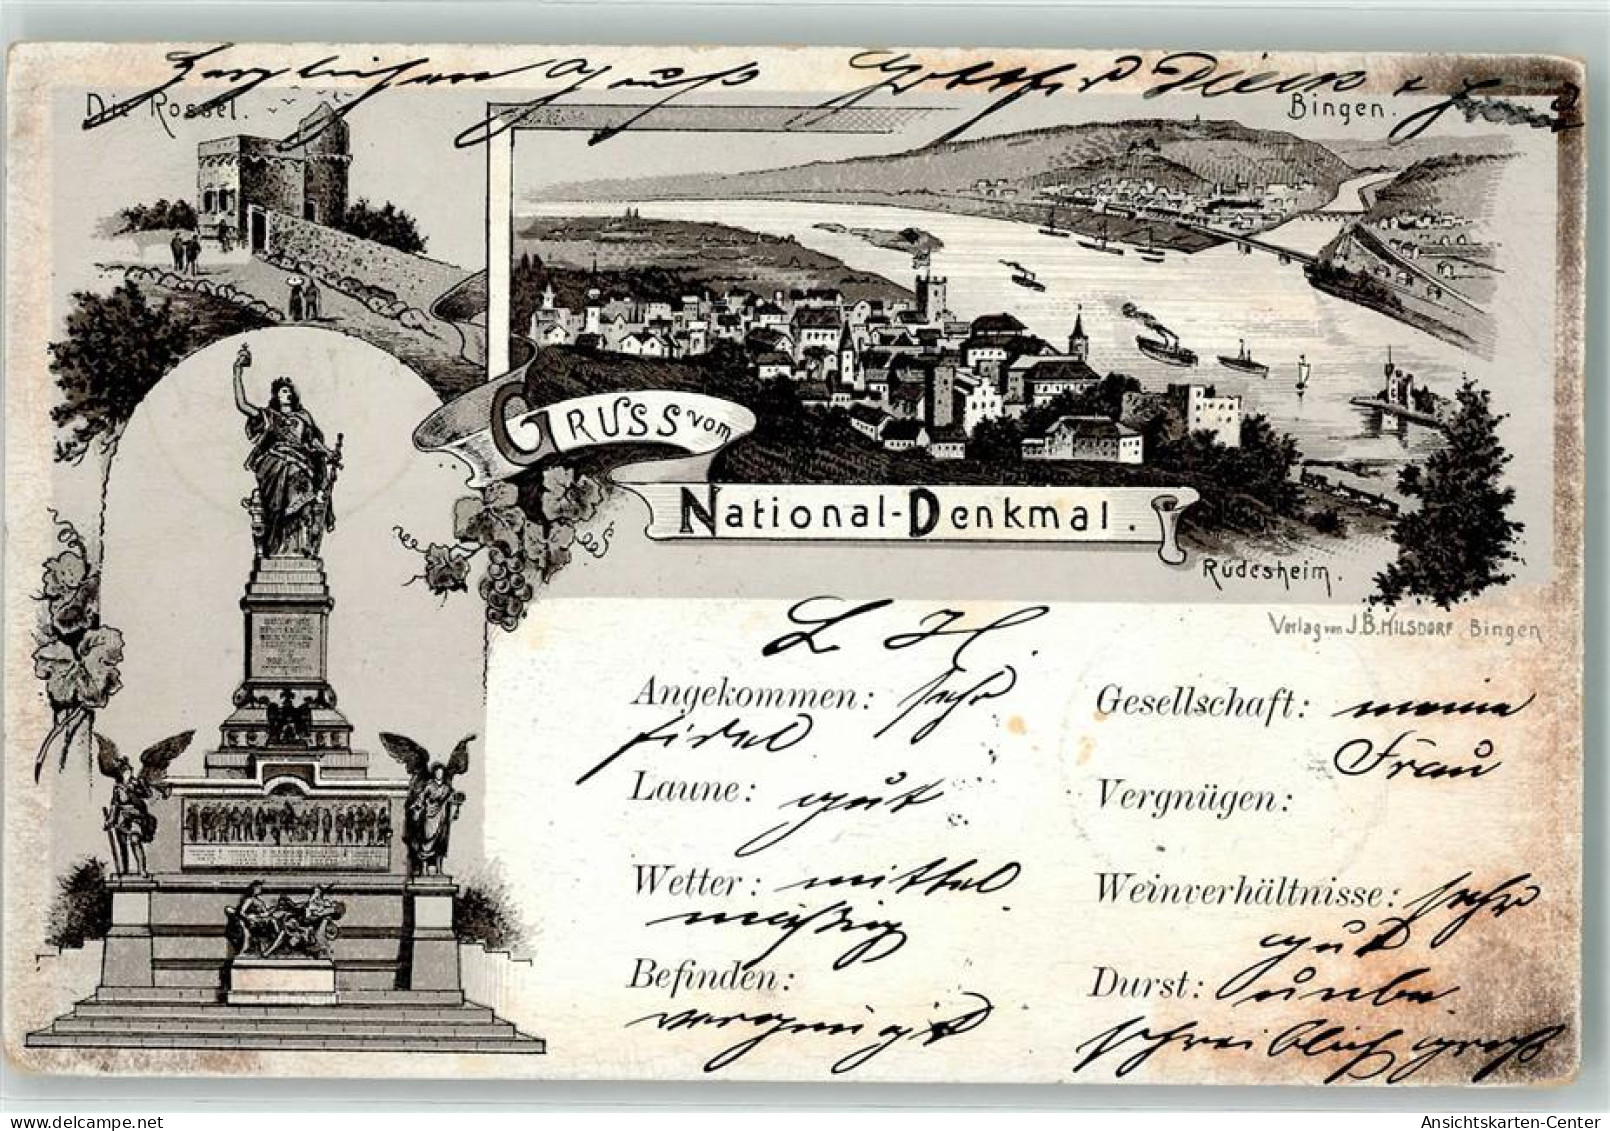 Herzlichen Gruß Gotthard Dieck
Die Rossel.
Bingen.
GRUSS vom
National-Denkmal.
Rüdesheim.
Verlag von J.B. HILSDORF Bingen
L H.
Angekommen: sehr
fidel
Gesellschaft: meine
Frau
Laune: gut
Vergnügen:
Wetter: mittel
mäßig
Weinverhältnisse: sehr
gut
Befinden:
vergnügt
Durst: unbe
schreiblich groß
oldthing
Ansichtskarten-Center